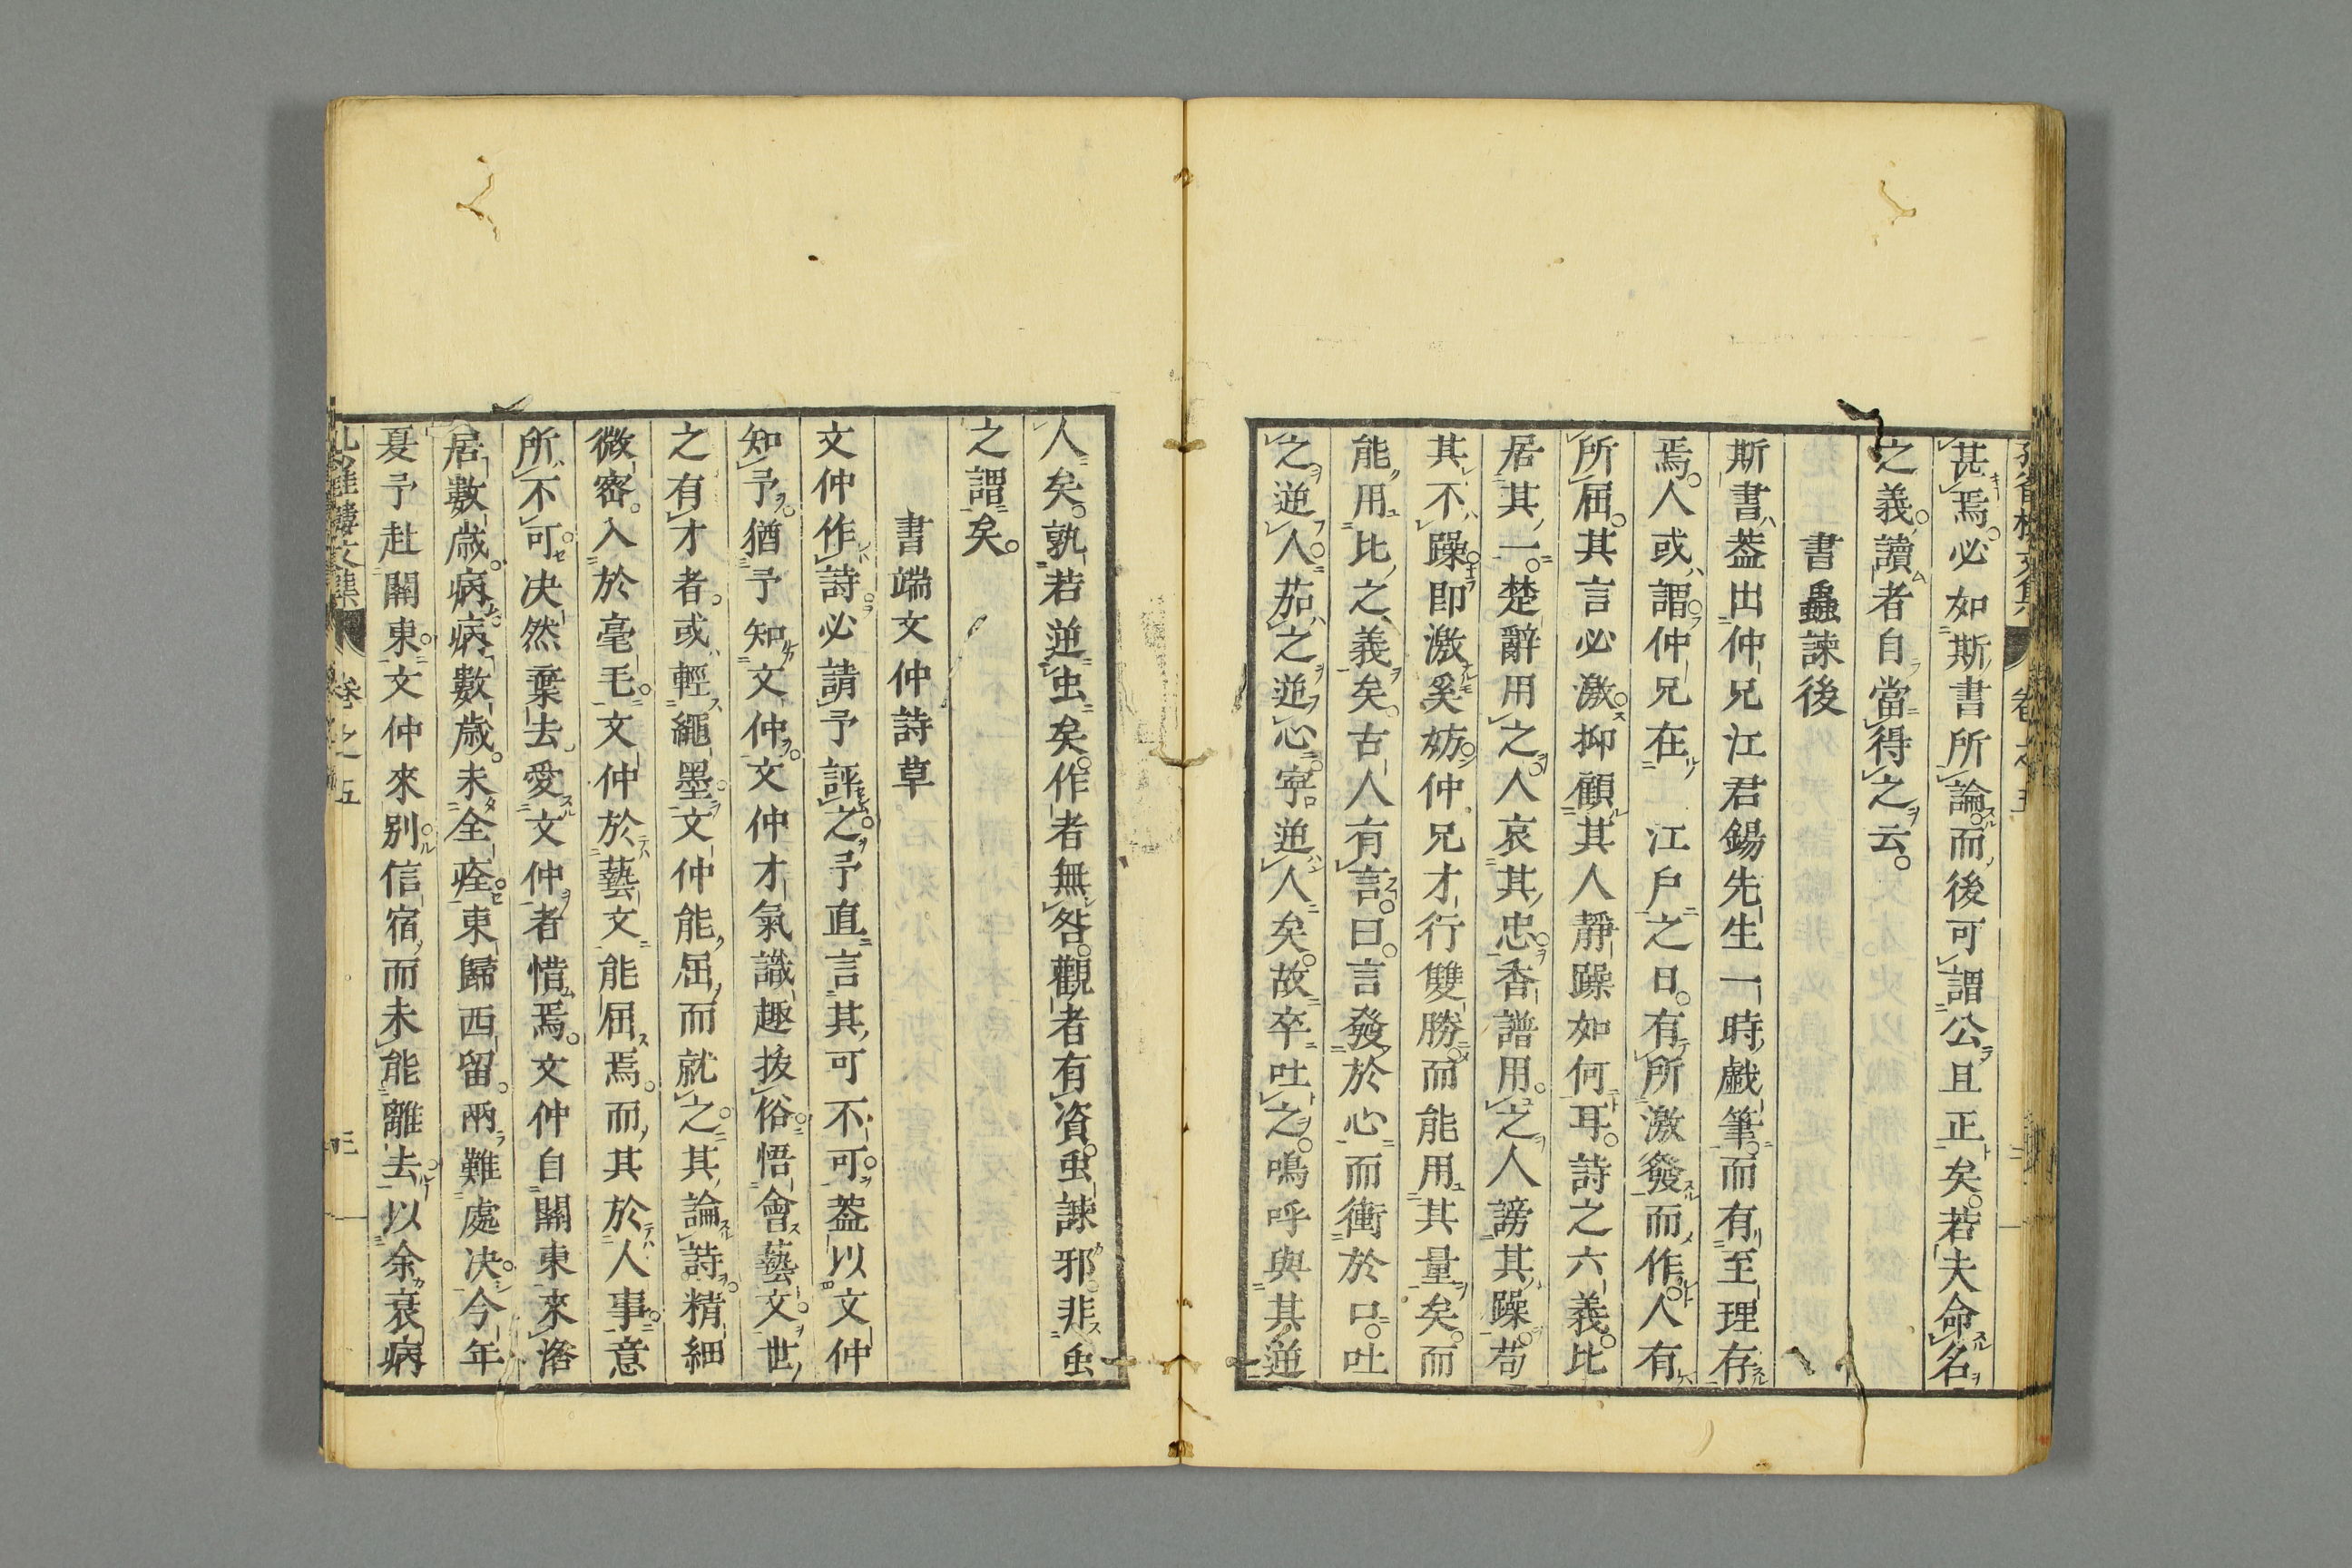 甚焉必如斯書所論而後可謂公且正矣若夫命名
之義讀者自當得之云
書蝨諫後
斯書葢出仲兄江君錫先生一時戲筆而有至理存
焉人或謂仲兄在江戶之日有所激發而作人有
所屈其言必激抑顧其人靜躁如何耳詩之六義比
居其一楚辭用之人哀其忠香譜用之人謗其躁苟
其不躁即激奚妨仲兄才行雙勝而能用其量矣而
能用比之義矣古人有言曰言發於心而衝於口吐
之逆人茹之逆心寧逆人矣故卒吐之嗚呼與其逆
人矣孰若逆虫矣作者無咎觀者有資虫諫邪非虫
之謂矣
書端文仲詩草
文仲作詩必請予評之予直言其可不可葢以文仲
知予猶予知文仲文仲才氣識趣拔俗悟會藝文世
之有才者或輕繩墨文仲能屈而就之其論詩精細
微密入於毫毛文仲於藝文能屈焉而其於人事意
所不可决然棄去愛文仲者惜焉文仲自關東來洛
居數歲病病數歲未全痊東歸西留兩難處决今年
夏予赴關東文仲來別信宿而未能離去以余衰病
卷之五